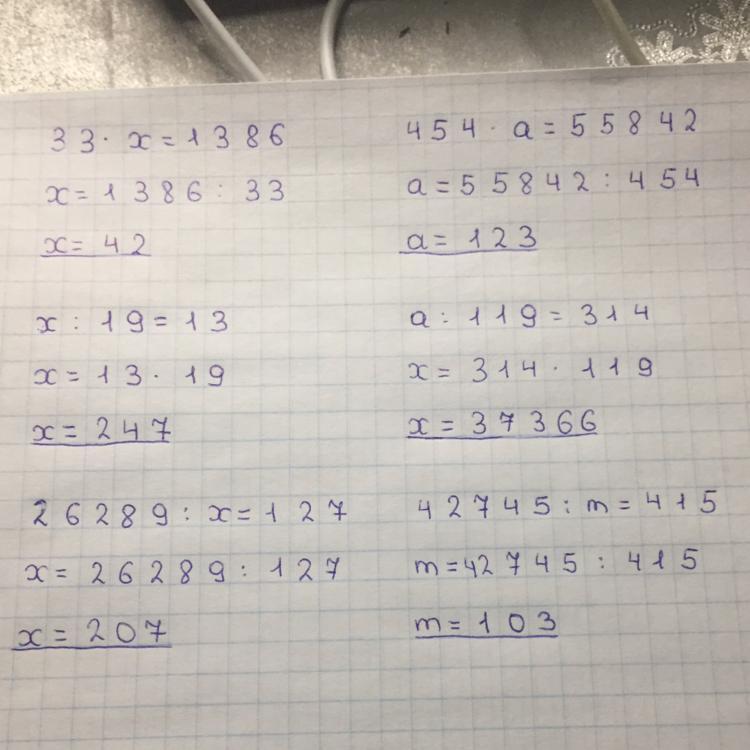 33 · x = 1386
x = 1386 : 33
x = 42
454 · a = 55842
a = 55842 : 454
a = 123
x : 19 = 13
x = 13 · 19
x = 247
a : 119 = 314
x = 314 · 119
x = 37366
26289 : x = 127
x = 26289 : 127
x = 207
42745 : m = 415
m = 42745 : 415
m = 103